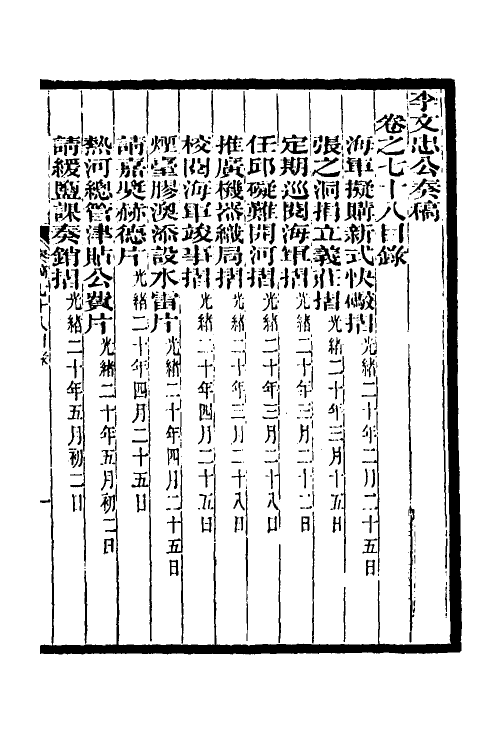 李文忠公奏稿
卷之七十八目錄
海軍擬購新式快礮摺光緒二十年二月二十五日
張之洞捐立義莊摺光緒二十年三月十五日
定期巡閱海軍摺光緒二十年三月二十二日
任邱礙難開河摺光緒二十年三月二十八日
推廣機器織局摺光緒二十年三月二十八日
校閱海軍竣事摺光緒二十年四月二十五日
煙臺膠澳添設水雷片光緒二十年四月二十五日
請嘉奬赫德片光緒二十年四月二十五日
熱河總管津貼公費片光緒二十年五月初二日
請緩鹽課奏銷摺光緒二十年五月初二日
奏稿七十八目錄
一